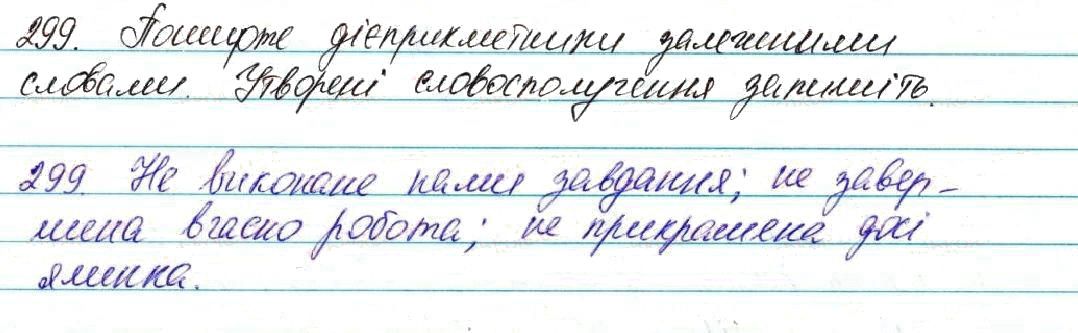 299. Поширте дієприкметники залежними
словами. Утворені словосполучення запишіть.
299. Не виконане нами завдання; не завер-
шена вчасно робота; не прикрашена досі
ялинка.